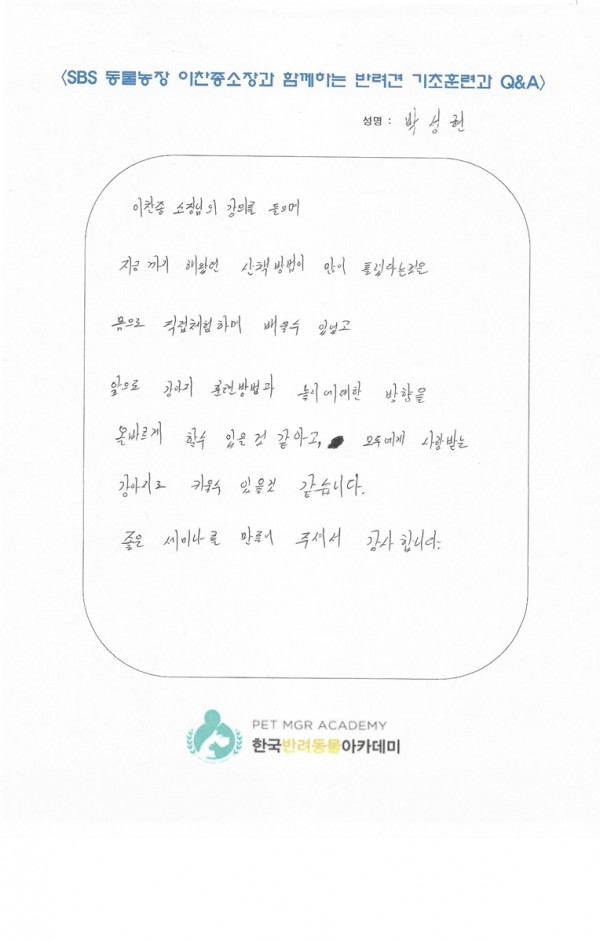 <SBS 동물농장 이찬종소장과 함께하는 반려견 기초훈련과 Q&A>
성명 : 박성현
이찬종 소장님의 강의를 들으며
지금 까지 해왔던 산책방법이 많이 틀렸다는것은
몸으로 직접체험하며 배울수 있었고
앞으로 강아지 훈련방법과 놀이에대한 방향을
올바르게 할수 있을것 같아고, 모두에게 사랑받는
강아지로 키울수 있을것 같습니다.
좋은 세미나를 만들어 주셔서 감사합니다.
PET MGR ACADEMY
한국반려동물아카데미